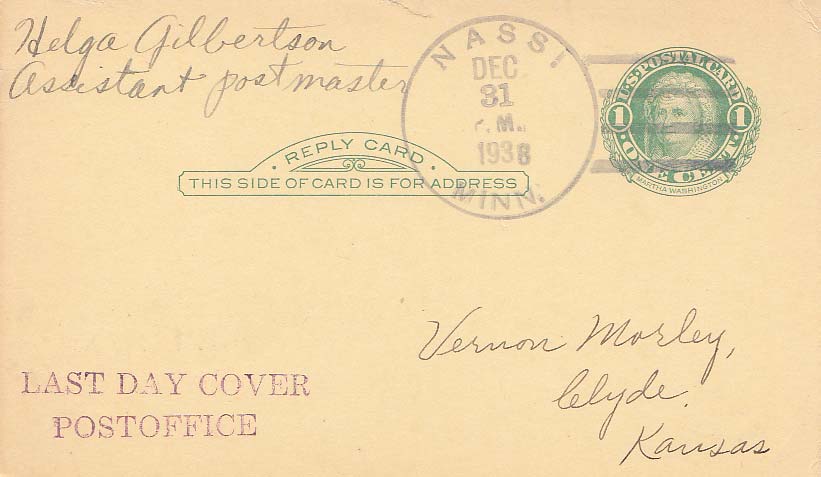 Helga Gilbertson
Assistant postmaster
NASS!
DEC
31
P.M.
1938
MINN.
U.S. POSTAL CARD
1 1
ONE CENT
MARTHA WASHINGTON
· REPLY CARD ·
THIS SIDE OF CARD IS FOR ADDRESS
Vernon Morley,
Clyde.
Kansas
LAST DAY COVER
POSTOFFICE